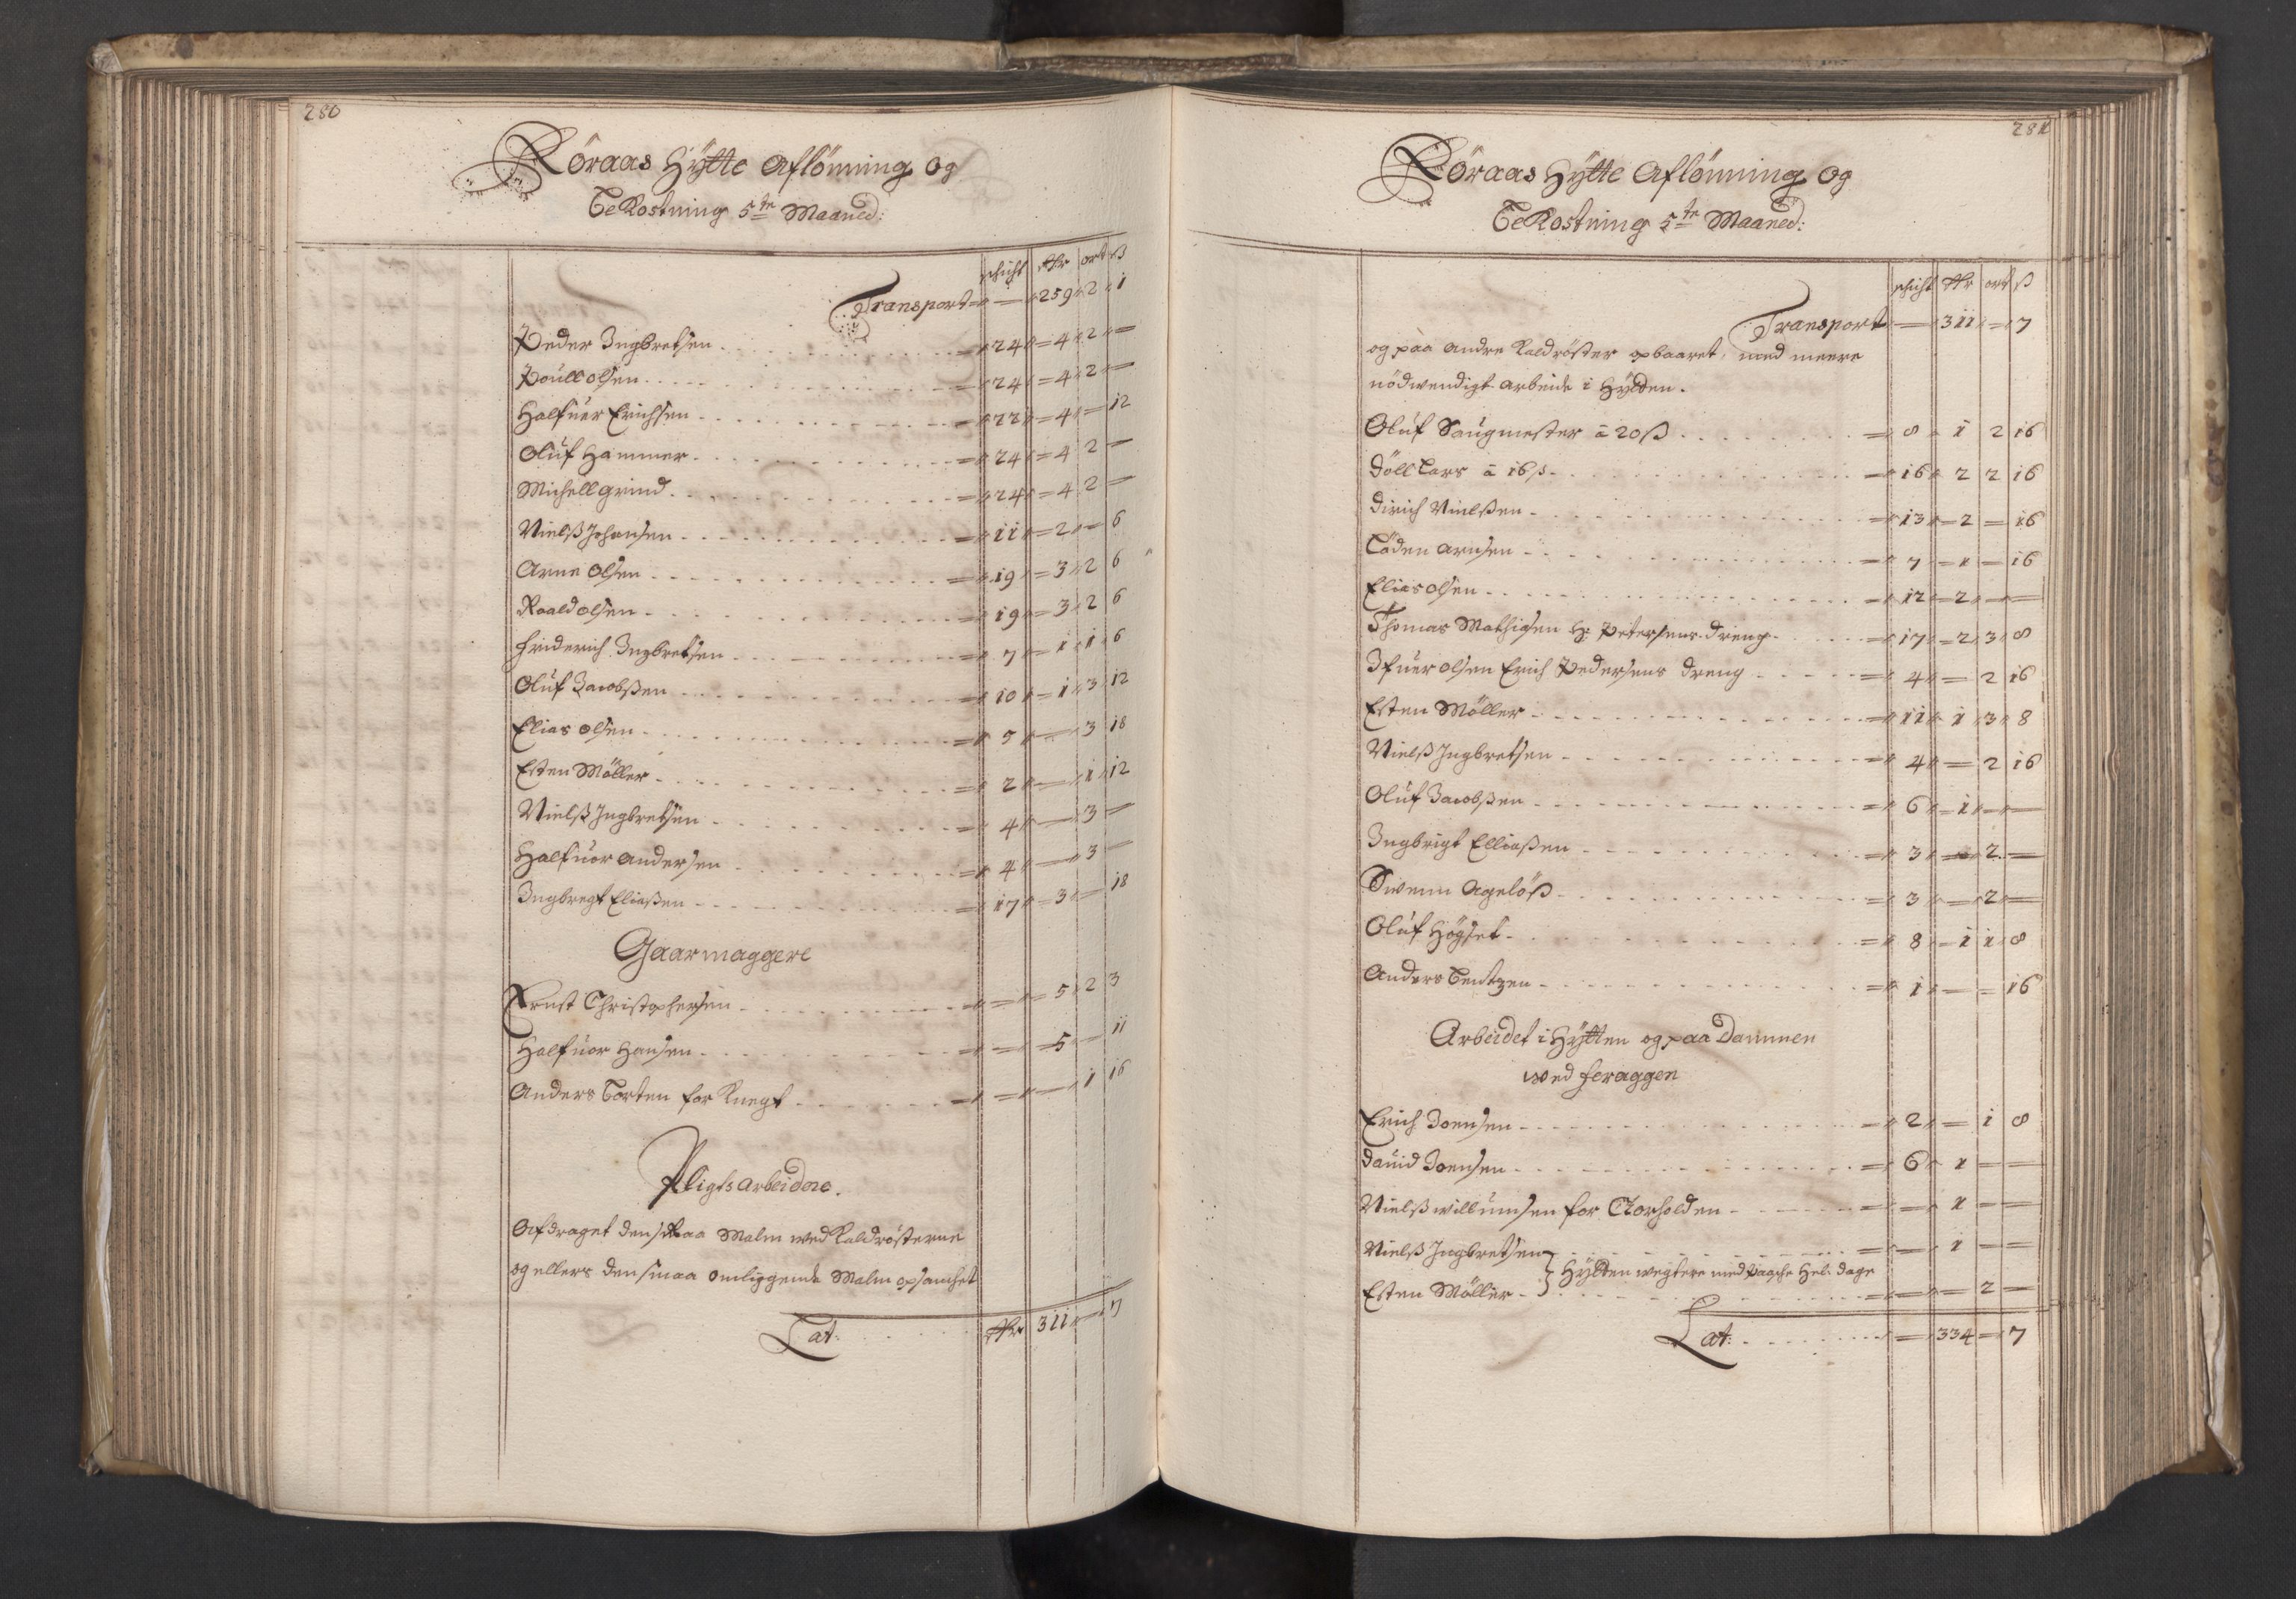 280
Röraas Hÿtte Aflönning og
Bekostning 5te Maaned:
schicht Rdr ort ß
Transport — 259 2 1
Peder Ingbretsen 24 4 2 —
Poull olsen 24 4 2 —
Halfuer Erichsen 22 4 — 12
Oluf Hammer 24 4 2 —
Michell grind 24 4 2 —
Nielß Johansen 11 2 — 6
Arne Olsen 19 3 2 6
Roald olsen 19 3 2 6
friderich Ingbretsen 7 1 1 6
Oluf Jacobßen 10 1 3 12
Elias olsen 5 — 3 18
Esten Möller 2 — 1 12
Nielß Ingbretsen 4 — 3 —
Halfuor andersen 4 — 3 —
Ingbregt Eliaßen 17 3 — 18
Gaarmaggere
Ernst Christophersen — 5 2 3
Halfuor Hansen — 5 — 11
Anders Borten for Knegt — — 1 16
Pligts Arbeidere.
Afdraget den smaa Malm wed Kaldrösterne
og ellers den smaa omliggende Malm opsamlet
Lat: Rdr 311 — 7
281
Röraas Hÿtte Aflönning og
Bekostning 5te Maaned:
schicht Rdr ort ß
Transport — 311 — 7
og paa andre Kaldröster opbaaret, med meere
nödwendigt arbeide i Hÿtten.
Oluf Saugmester â 20 ß 8 1 2 16
Döll Lars â 16 ß 16 2 2 16
Dirich Nielßen 13 2 — 16
Töden arnsen 7 1 — 16
Elias olsen 12 2 — —
Thomas Mathisen H: Petersens dreng 17 2 3 8
Ifuer olsen Erich Pedersens dreng 4 — 2 16
Esten Möller 11 1 3 8
Nielß Ingbretsen 4 — 2 16
Oluf Jacobßen 6 1 — —
Ingbrigt Elliaßen 3 — 2 —
Swenn Agelöß 3 — 2 —
Oluf Högset 8 1 1 8
Anders Bentzen 1 — — 16
Arbeidet i Hÿtten og paa Dammen
wed feraggen
Erich Joensen 2 — 1 8
Dauid Joensen 6 1 — —
Nielß willumsen for Clorholden — 1 — —
Nielß Ingbretsen — 1 — —
} Hÿtten wegtere med Paasche Hel: dage
Esten Möller — — 2 —
Lat: — 334 — 7